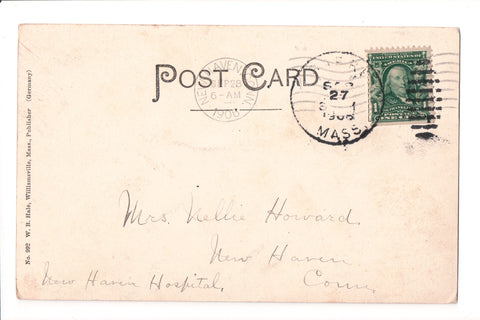 POST CARD
NEW HAVEN, CONN.
6-AM
1906
SEP
27
1906
MASS.
UNITED STATES OF AMERICA
1
Mrs. Nellie Howard.
New Haven
New Haven Hospital, Conn,
No. 992 W. B. Hale, Williamsville, Mass., Publisher (Germany)